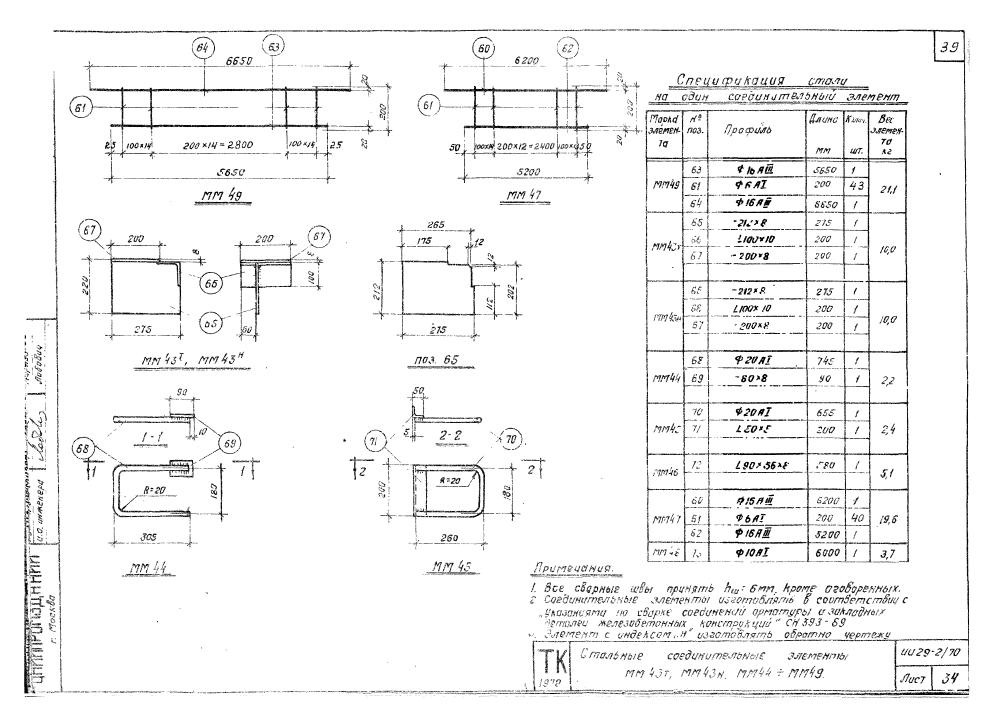 39
64
63
6650
61
20
300
20
25
100×14
200×14=2800
100×14
25
5650
ММ 49
60
62
6200
61
20
200
20
50
200×12=2400
50
5200
ММ 47
67
200
8
220
275
66
65
200
67
8
100
60
ММ 43т, ММ 43н
265
175
12
12
212
112
202
275
поз. 65
90
10
1-1
68
69
1
1
R=20
180
305
ММ 44
50
5
2-2
71
70
2
2
R=20
200
180
260
ММ 45
Спецификация стали
на один соединительный элемент
Марка элемента | № поз. | Профиль | Длина мм | Колич. шт. | Вес элемента кг
ММ49 | 63 | Ф16АIII | 5650 | 1 | 21,1
61 | Ф6АI | 200 | 43
64 | Ф16АIII | 6650 | 1
ММ43т | 65 | -212×8 | 275 | 1 | 10,0
66 | L100×10 | 200 | 1
67 | -200×8 | 200 | 1
ММ43н | 65 | -212×8 | 275 | 1 | 10,0
66 | L100×10 | 200 | 1
67 | -200×8 | 200 | 1
ММ44 | 68 | Ф20АI | 745 | 1 | 2,2
69 | -60×8 | 90 | 1
ММ45 | 70 | Ф20АI | 655 | 1 | 2,4
71 | L50×5 | 200 | 1
ММ46 | 72 | L90×56×8 | 1 | 5,1
ММ47 | 60 | Ф16АIII | 6200 | 1 | 19,6
61 | Ф6АI | 200 | 40
62 | Ф16АIII | 5200 | 1
73 | Ф10АI | 6000 | 1 | 3,7
Примечания:
1. Все сварные швы принять hш=6мм, кроме оговоренных.
2. Соединительные элементы изготовлять в соответствии с
„Указаниями по сварке соединений арматуры и закладных
деталей железобетонных конструкций" СН 393-69
Элемент с индексом „н" изготовлять обратно чертежу
ТК
1970
Стальные соединительные элементы
ММ 43т, ММ43н, ММ44÷ММ49.
ИИ29-2/70
Лист 34
ЦНИИПРОМЗДАНИЙ
г. Москва
И.о. инженера
Лобович